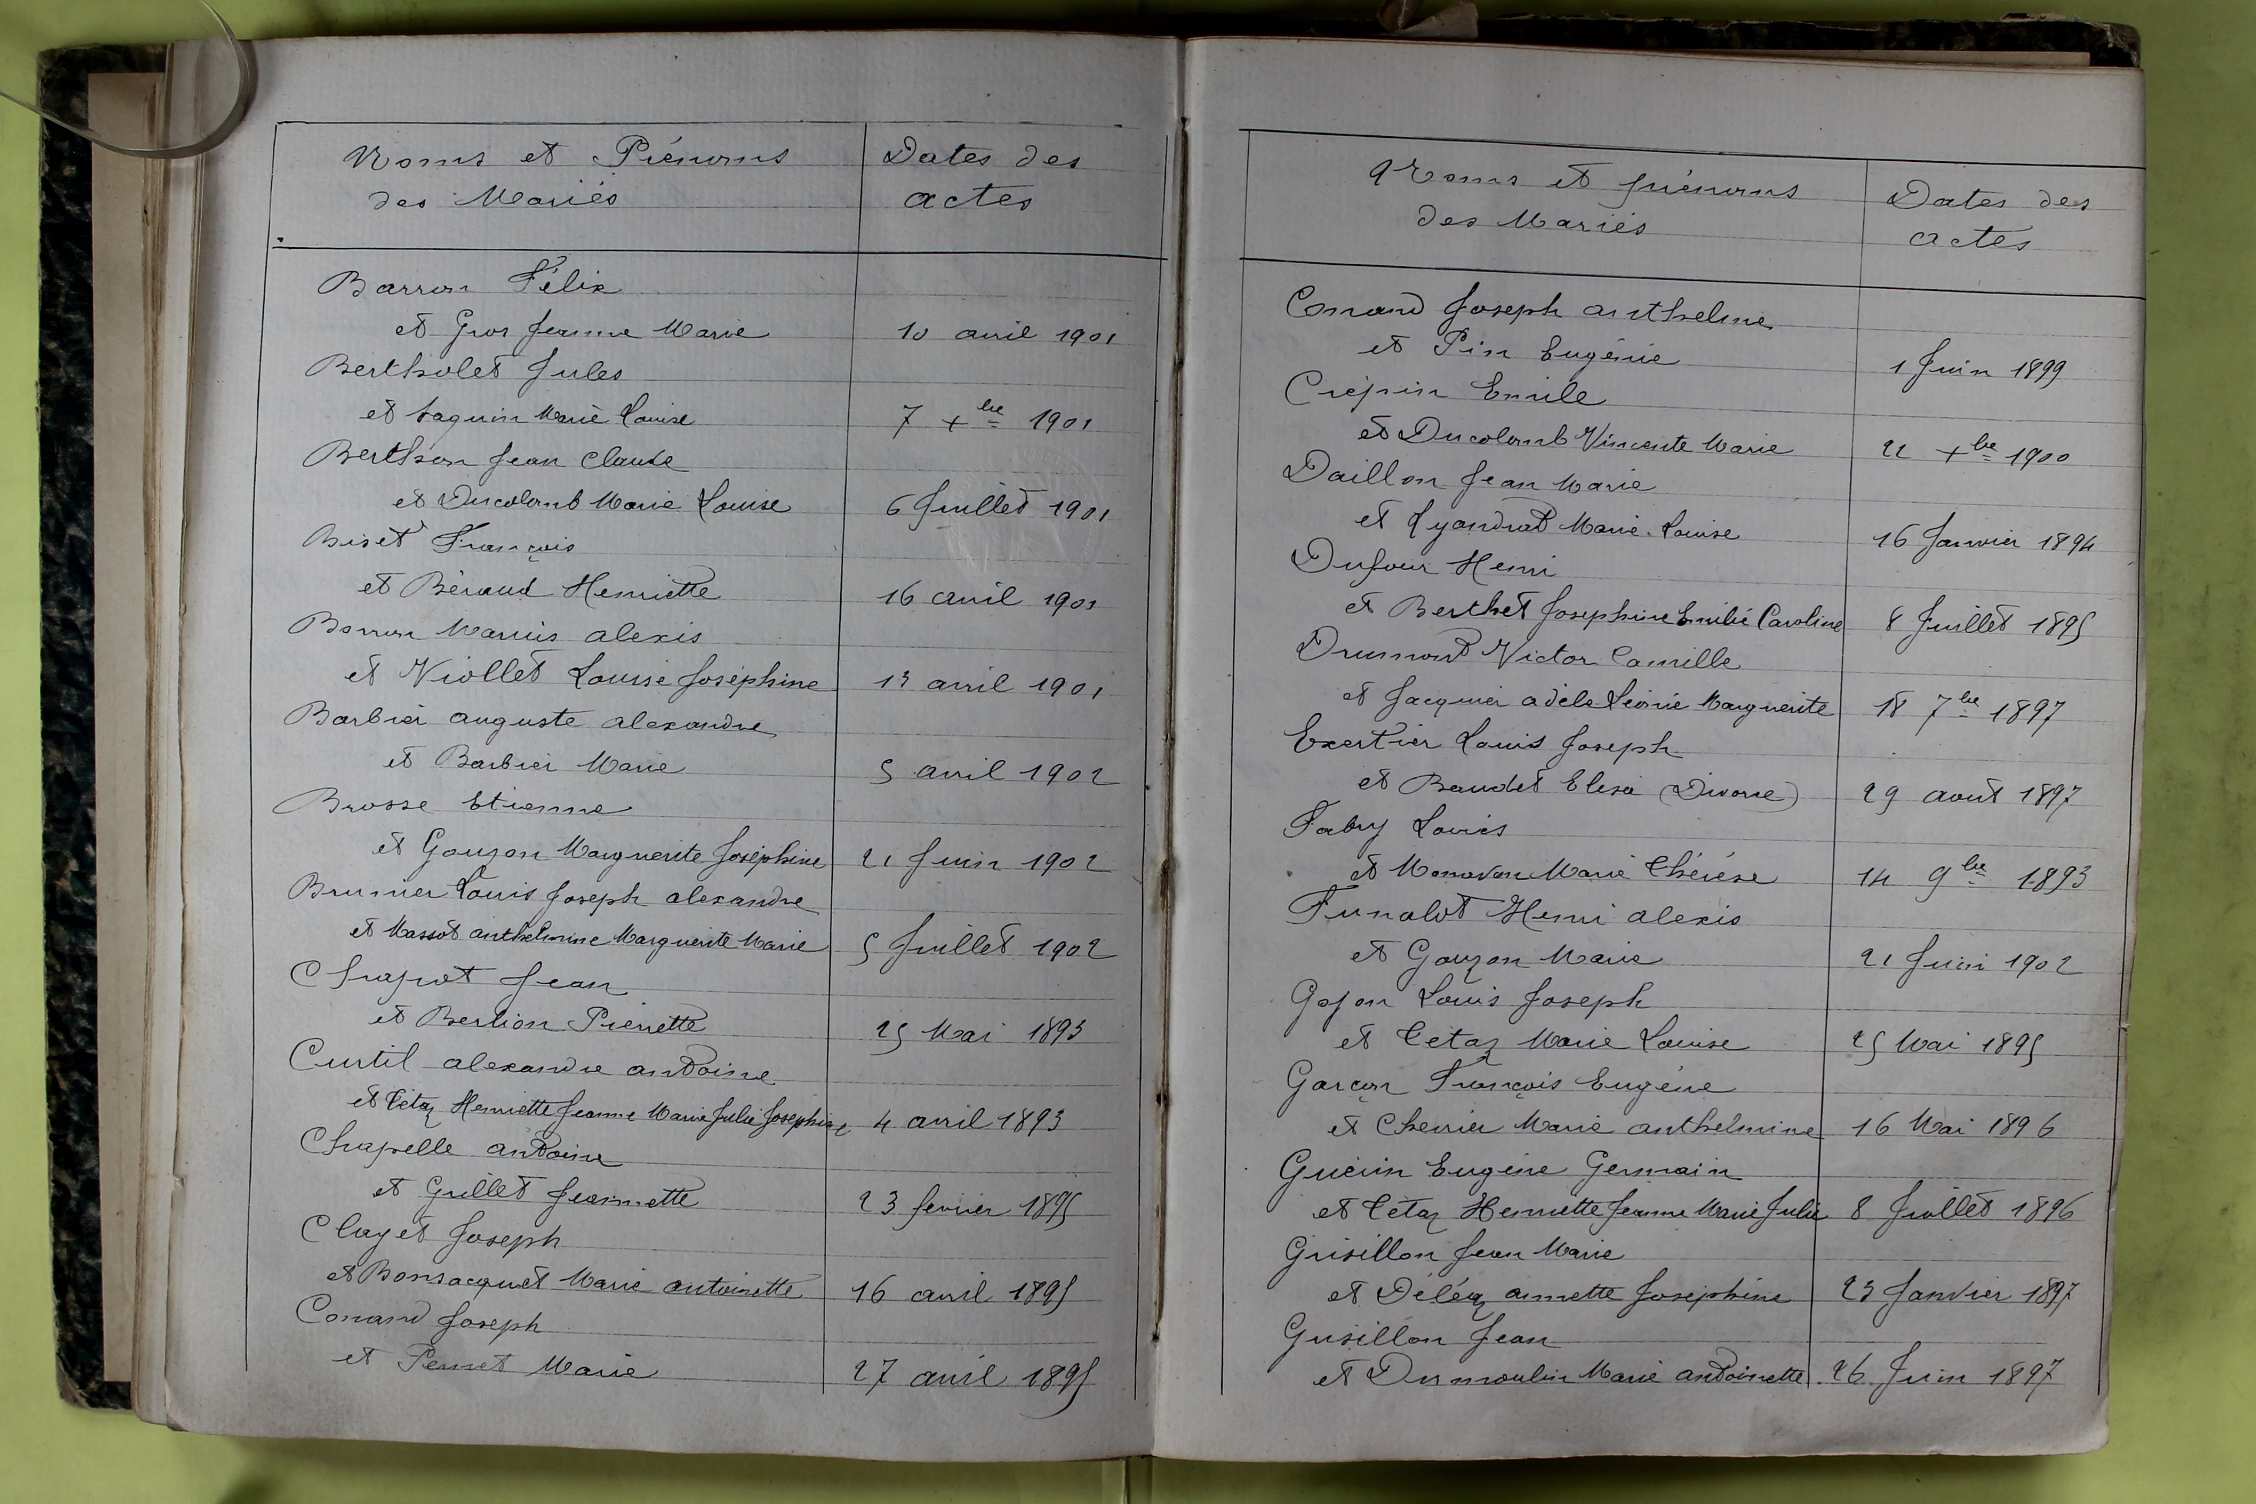 Noms et Prénoms Dates des
des Mariés actes
Barron Félix
et Gros Jeanne Marie 10 avril 1901
Bertholet Jules
et Saguin Marie Louise 7 +bre 1901
Berthion Jean Claude
et Ducolomb Marie Louise 6 Juillet 1901
Biset François
et Béraud Henriette 16 avril 1901
Borron Marius alexis
et Viollet Louise Joséphine 13 avril 1901
Barbier auguste alexandre
et Barbier Marie 5 avril 1902
Brosse Etienne
et Gouzon Marguerite Joséphine 21 Juin 1902
Brunier Louis Joseph alexandre
et Massot anthelmine Marguerite Marie 5 Juillet 1902
Chapot Jean
et Berlion Pierrette 25 Mai 1893
Curtil alexandre antoine
et Cétaz Henriette Jeanne Marie Julie Joséphine 4 avril 1893
Chapelle antoine
et Grillet Jeannette 23 fevrier 1895
Clayet Joseph
et Bonsacquet Marie antoinette 16 avril 1895
Conand Joseph
et Perret Marie 27 avril 1895
Noms et prénoms Dates des
des Mariés actes
Conand Joseph anthelme
et Pin Eugénie 1 Juin 1899
Crépin Emile
et Ducolomb Vincente Marie 22 +bre 1900
Daillon Jean Marie
et Lyandrat Marie Louise 16 Janvier 1894
Dufour Henri
et Berthet Josephine Emilie Caroline 8 Juillet 1895
Drumont Victor Camille
et Jacquier adèle Léonie Marguerite 18 7bre 1897
Exertier Louis Joseph
et Baudet Elisa (Divorce) 29 août 1897
Fabry Louis
et Monavon Marie Thérèse 14 9bre 1893
Funalot Henri alexis
et Gouzon Marie 21 Juin 1902
Gojon Louis Joseph
et Cetaz Marie Louise 25 Mai 1895
Garçon François Eugène
et Cherrier Marie anthelmine 16 Mai 1896
Guérin Eugène Germain
et Cétaz Henriette Jeanne Marie Julie 8 Juillet 1896
Grisillon Jean Marie
et Déléaz annette Joséphine 23 Janvier 1897
Grisillon Jean
et Dumoulin Marie antoinette 26 Juin 1897